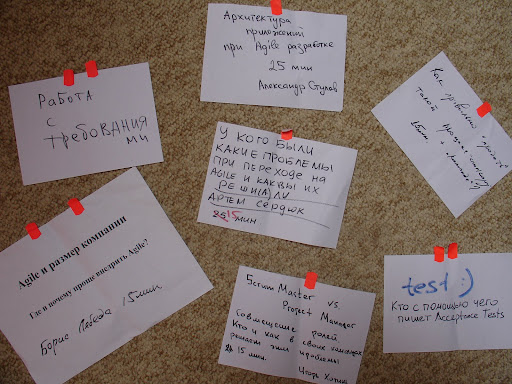 Архитектура
приложений
при Agile разработке
25 мин
Александр
Работа
с
требования
ми
Как правильно
такой процесс
15мин +
У КОГО БЫЛИ
КАКИЕ ПРОБЛЕМЫ
ПРИ ПЕРЕХОДЕ НА
AGILE И КАК ВЫ ИХ
РЕШИ(А)ЛИ
АРТЕМ СЕРДЮК
15 МИН
Agile и размер компании
Где и почему проще внедрить Agile?
Борис Лебеда 15мин
Scrum Master vs.
Project Manager
Совмещение ролей
Кто и как в своих командах
решает эти проблемы
15 мин.
Игорь
test :)
Кто с помощью чего
пишет Acceptance Tests